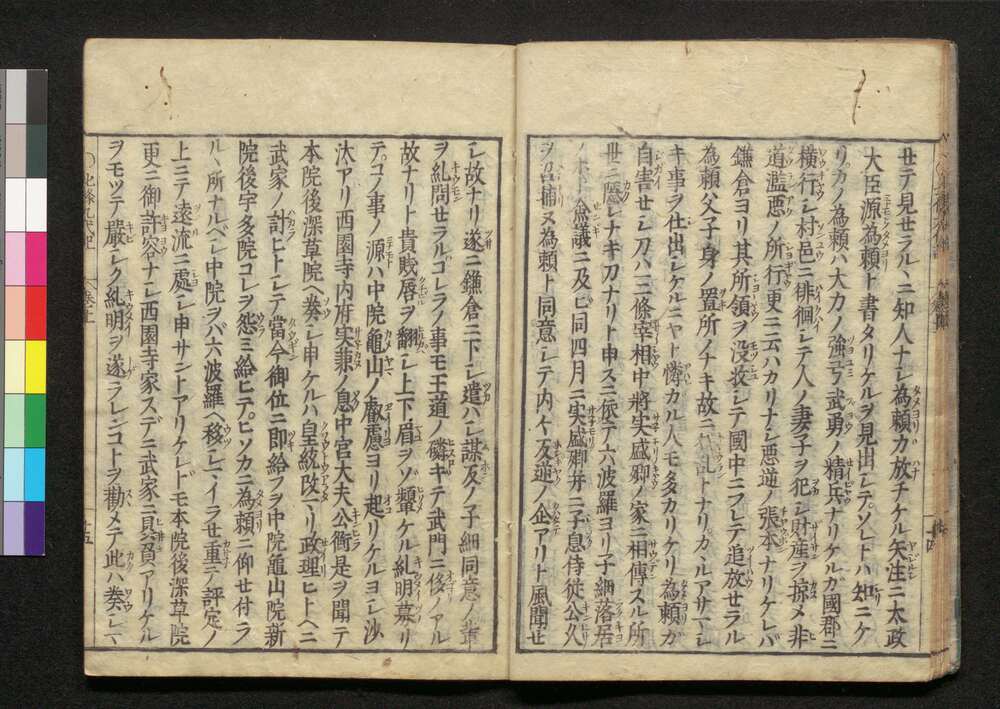 世テ見セラルヽニ知人ナシ為頼カ放チケル矢注ニ太政
大臣源為頼ト書タリケルヲ見出シテソレトハ知ニケ
リカノ為頼ハ大力ノ強弓武勇ノ精兵ナリケルガ国郡ニ
横行シ村邑ニ徘徊シテ人ノ妻子ヲ犯シ財産ヲ掠メ非
道濫悪ノ所行更ニ云ハカリナシ悪逆ノ張本ナリケレバ
鎌倉ヨリ其所領ヲ没收シテ國中ニフレテ追放セラル
為頼父子身ノ置所ノナキ故ニ トナリカヽルアサマシ
キ事ヲ仕出シケルニヤト憐カル人モ多カリケリ為頼カ
自害セシ刀ハ三條宰相中將実盛卿ノ家ニ相傳スル所
世ニ隱レナキ刀ナリト申スニ依テ六波羅ヨリ子細落居
ノホト僉議ニ及ビ同四月ニ実盛卿并ニ子息侍従公久
ヲ召捕ヌ為頼ト同意シテ内々反逆ノ企アリト風聞セ
シ故ナリ遂ニ鎌倉ニ下シ遣ハシ謀反ノ子細同意ノ輩
ヲ糺問セラルコレラノ事モ王道ノ隣キテ武門ニ侈ノアル
故ナリト貴賤唇ヲ翻シ上下眉ヲゾ顰ケル糺明募リ
テコノ事ノ源ハ中院龜山ノ叡慮ヨリ起リケルヨシ沙
汰アリ西園寺内府実兼ノ息中宮大夫公衡是ヲ聞テ
本院後深草院ヘ奏シ申ケルハ皇統改マリ政理ヒトヘニ
武家ノ計ヒトシテ當今御位ニ即給フヲ中院龜山院新
院後宇多院コレヲ怨ミ給ヒテピソカニ為頼ニ仰セ付ラ
ルヽ所ナルベシ中院ヲバ六波羅ヘ移シマイラセ重テ評定ノ
上ニテ遠流ニ處シ申サントアリケレドモ本院後深草院
更ニ御許容ナシ西園寺家スデニ武家ニ贔負アリケル
ヲモツテ嚴シク糺明ヲ遂ラレンコトヲ勸メテ此ハ奏シ